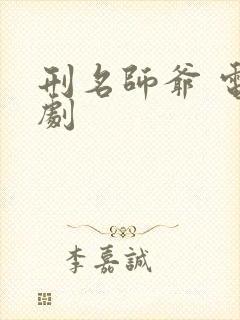 刑名師爺 電
劇
李嘉誠